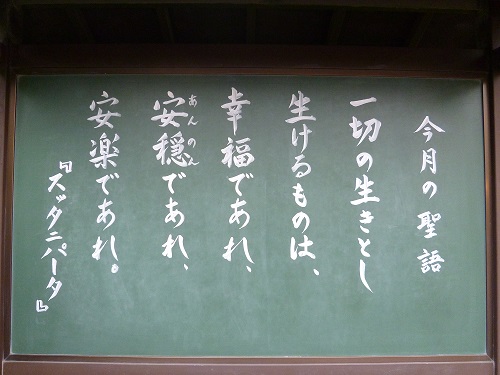 今月の聖語
一切の生きとし
生けるものは、
幸福であれ、
安穏であれ、
あんのん
安楽であれ。
『スッタニパータ』